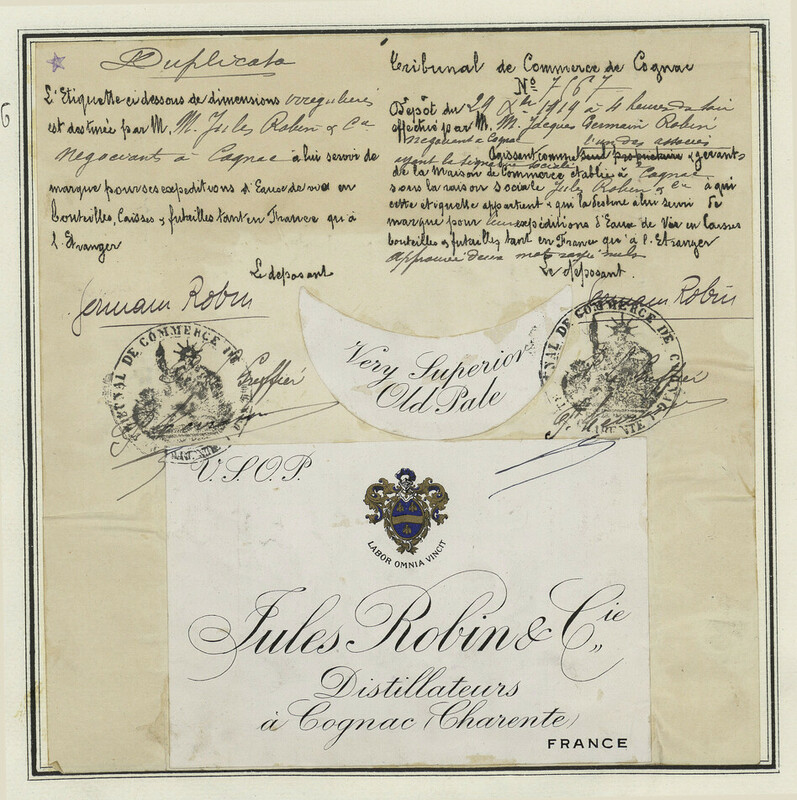 Duplicata
L'Etiquette ci dessous de dimensions irregulieres
est destinée par M. M. Jules Robin & Cie
Negociants à Cognac à lui servir de
marque pour ses expeditions d'Eaux de vie en
bouteilles, Caisses & futailles tant en France qu'à
l'Etranger
Le deposant
Germain Robin
Greffier
Tribunal de Commerce de Cognac
No 7567
Dépôt du 29 Xbre 1919 à 4 heures du soir
effectué par M. M. Jacques Germain Robin
negociant à Cognac l'un des associés
ayant la signature sociale
Agissant comme seul proprietaire & gerant
de la Maison de Commerce établie à Cognac
sous la raison sociale Jules Robin & Cie à qui
cette etiquette appartient & qui la destine à lui servir de
marque pour expéditions d'Eaux de Vie en Caisses
bouteilles & futailles tant en France qu'à l'Etranger
approuvé deux mots rayés nuls
Le deposant
Germain Robin
TRIBUNAL DE COMMERCE DE
TRIBUNAL DE COMMERCE DE
CHARENTE
Very Superior
Old Pale
V.S.O.P.
LABOR OMNIA VINCIT
Jules Robin & Cie
Distillateurs
à Cognac (Charente)
FRANCE
6